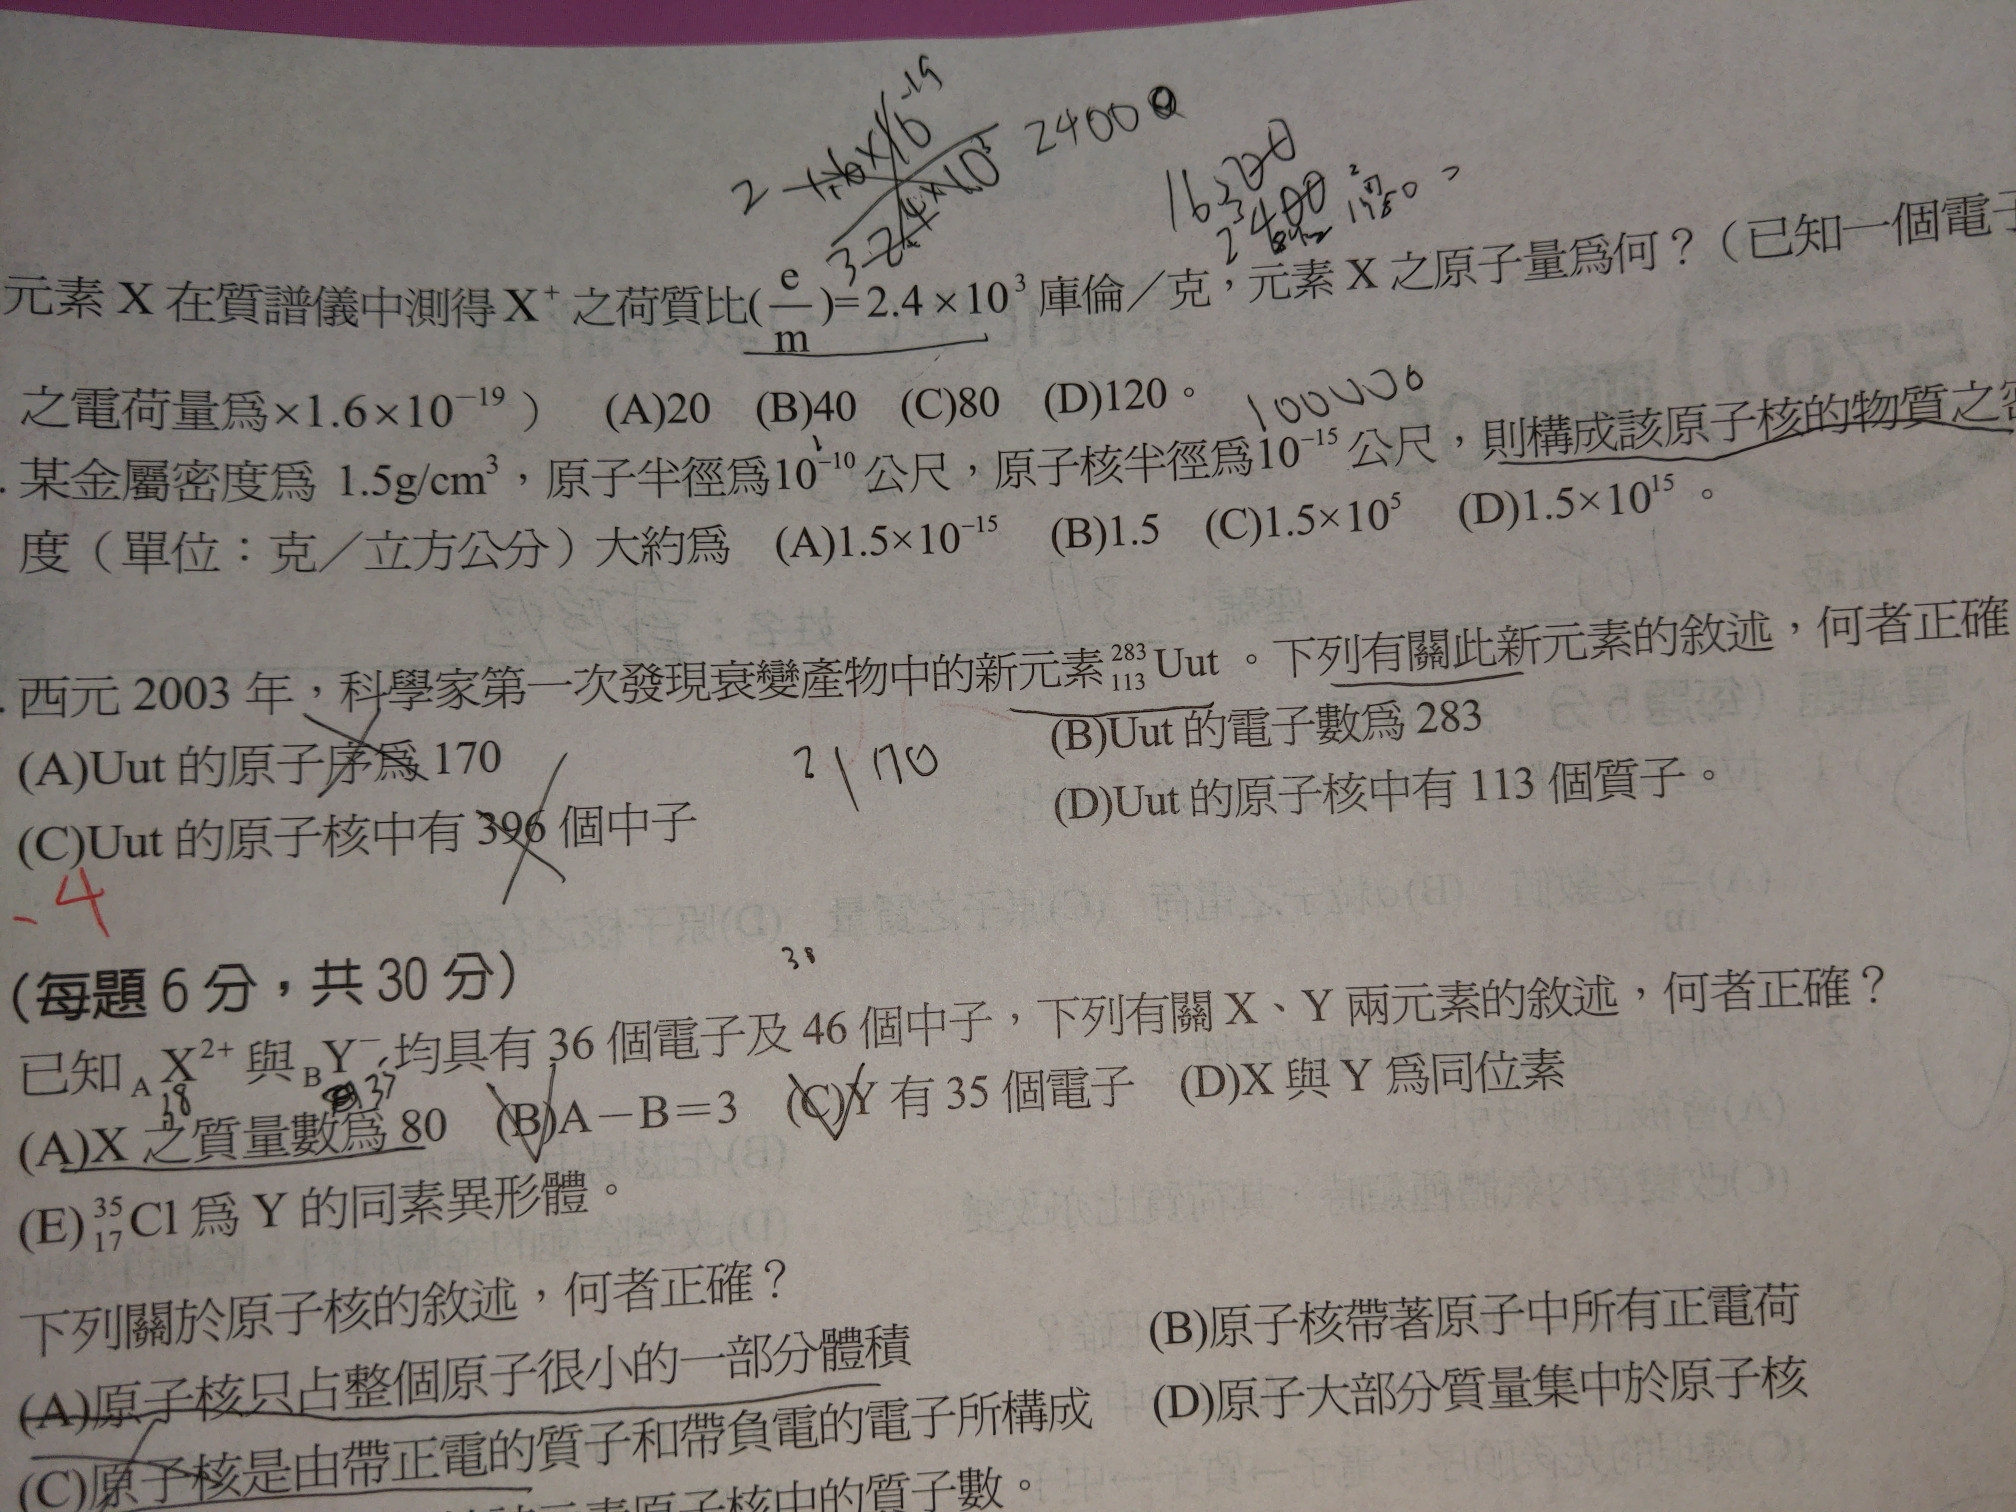 2 1.6×10⁻¹⁹ 24000
3 2.4×10³
16300
2400
元素 X 在質譜儀中測得 X⁺ 之荷質比(e/m)=2.4×10³ 庫倫／克，元素 X 之原子量為何？（已知一個電子
之電荷量為×1.6×10⁻¹⁹） (A)20 (B)40 (C)80 (D)120。
100000
某金屬密度為 1.5g/cm³，原子半徑為10⁻¹⁰公尺，原子核半徑為10⁻¹⁵公尺，則構成該原子核的物質之密
度（單位：克／立方公分）大約為 (A)1.5×10⁻¹⁵ (B)1.5 (C)1.5×10⁵ (D)1.5×10¹⁵。
西元 2003 年，科學家第一次發現衰變產物中的新元素 ²⁸³₁₁₃Uut。下列有關此新元素的敘述，何者正確
(A)Uut 的原子序為 170 (B)Uut 的電子數為 283
170
(C)Uut 的原子核中有 396 個中子 (D)Uut 的原子核中有 113 個質子。
-4
（每題 6 分，共 30 分）
38
已知 ₐX²⁺ 與 ᵦY⁻ 均具有 36 個電子及 46 個中子，下列有關 X、Y 兩元素的敘述，何者正確？
38 37
(A)X 之質量數為 80 (B)A－B＝3 (C)Y 有 35 個電子 (D)X 與 Y 為同位素
(E)³⁵₁₇Cl 為 Y 的同素異形體。
下列關於原子核的敘述，何者正確？
(A)原子核只占整個原子很小的一部分體積 (B)原子核帶著原子中所有正電荷
(C)原子核是由帶正電的質子和帶負電的電子所構成 (D)原子大部分質量集中於原子核
元素原子核中的質子數。